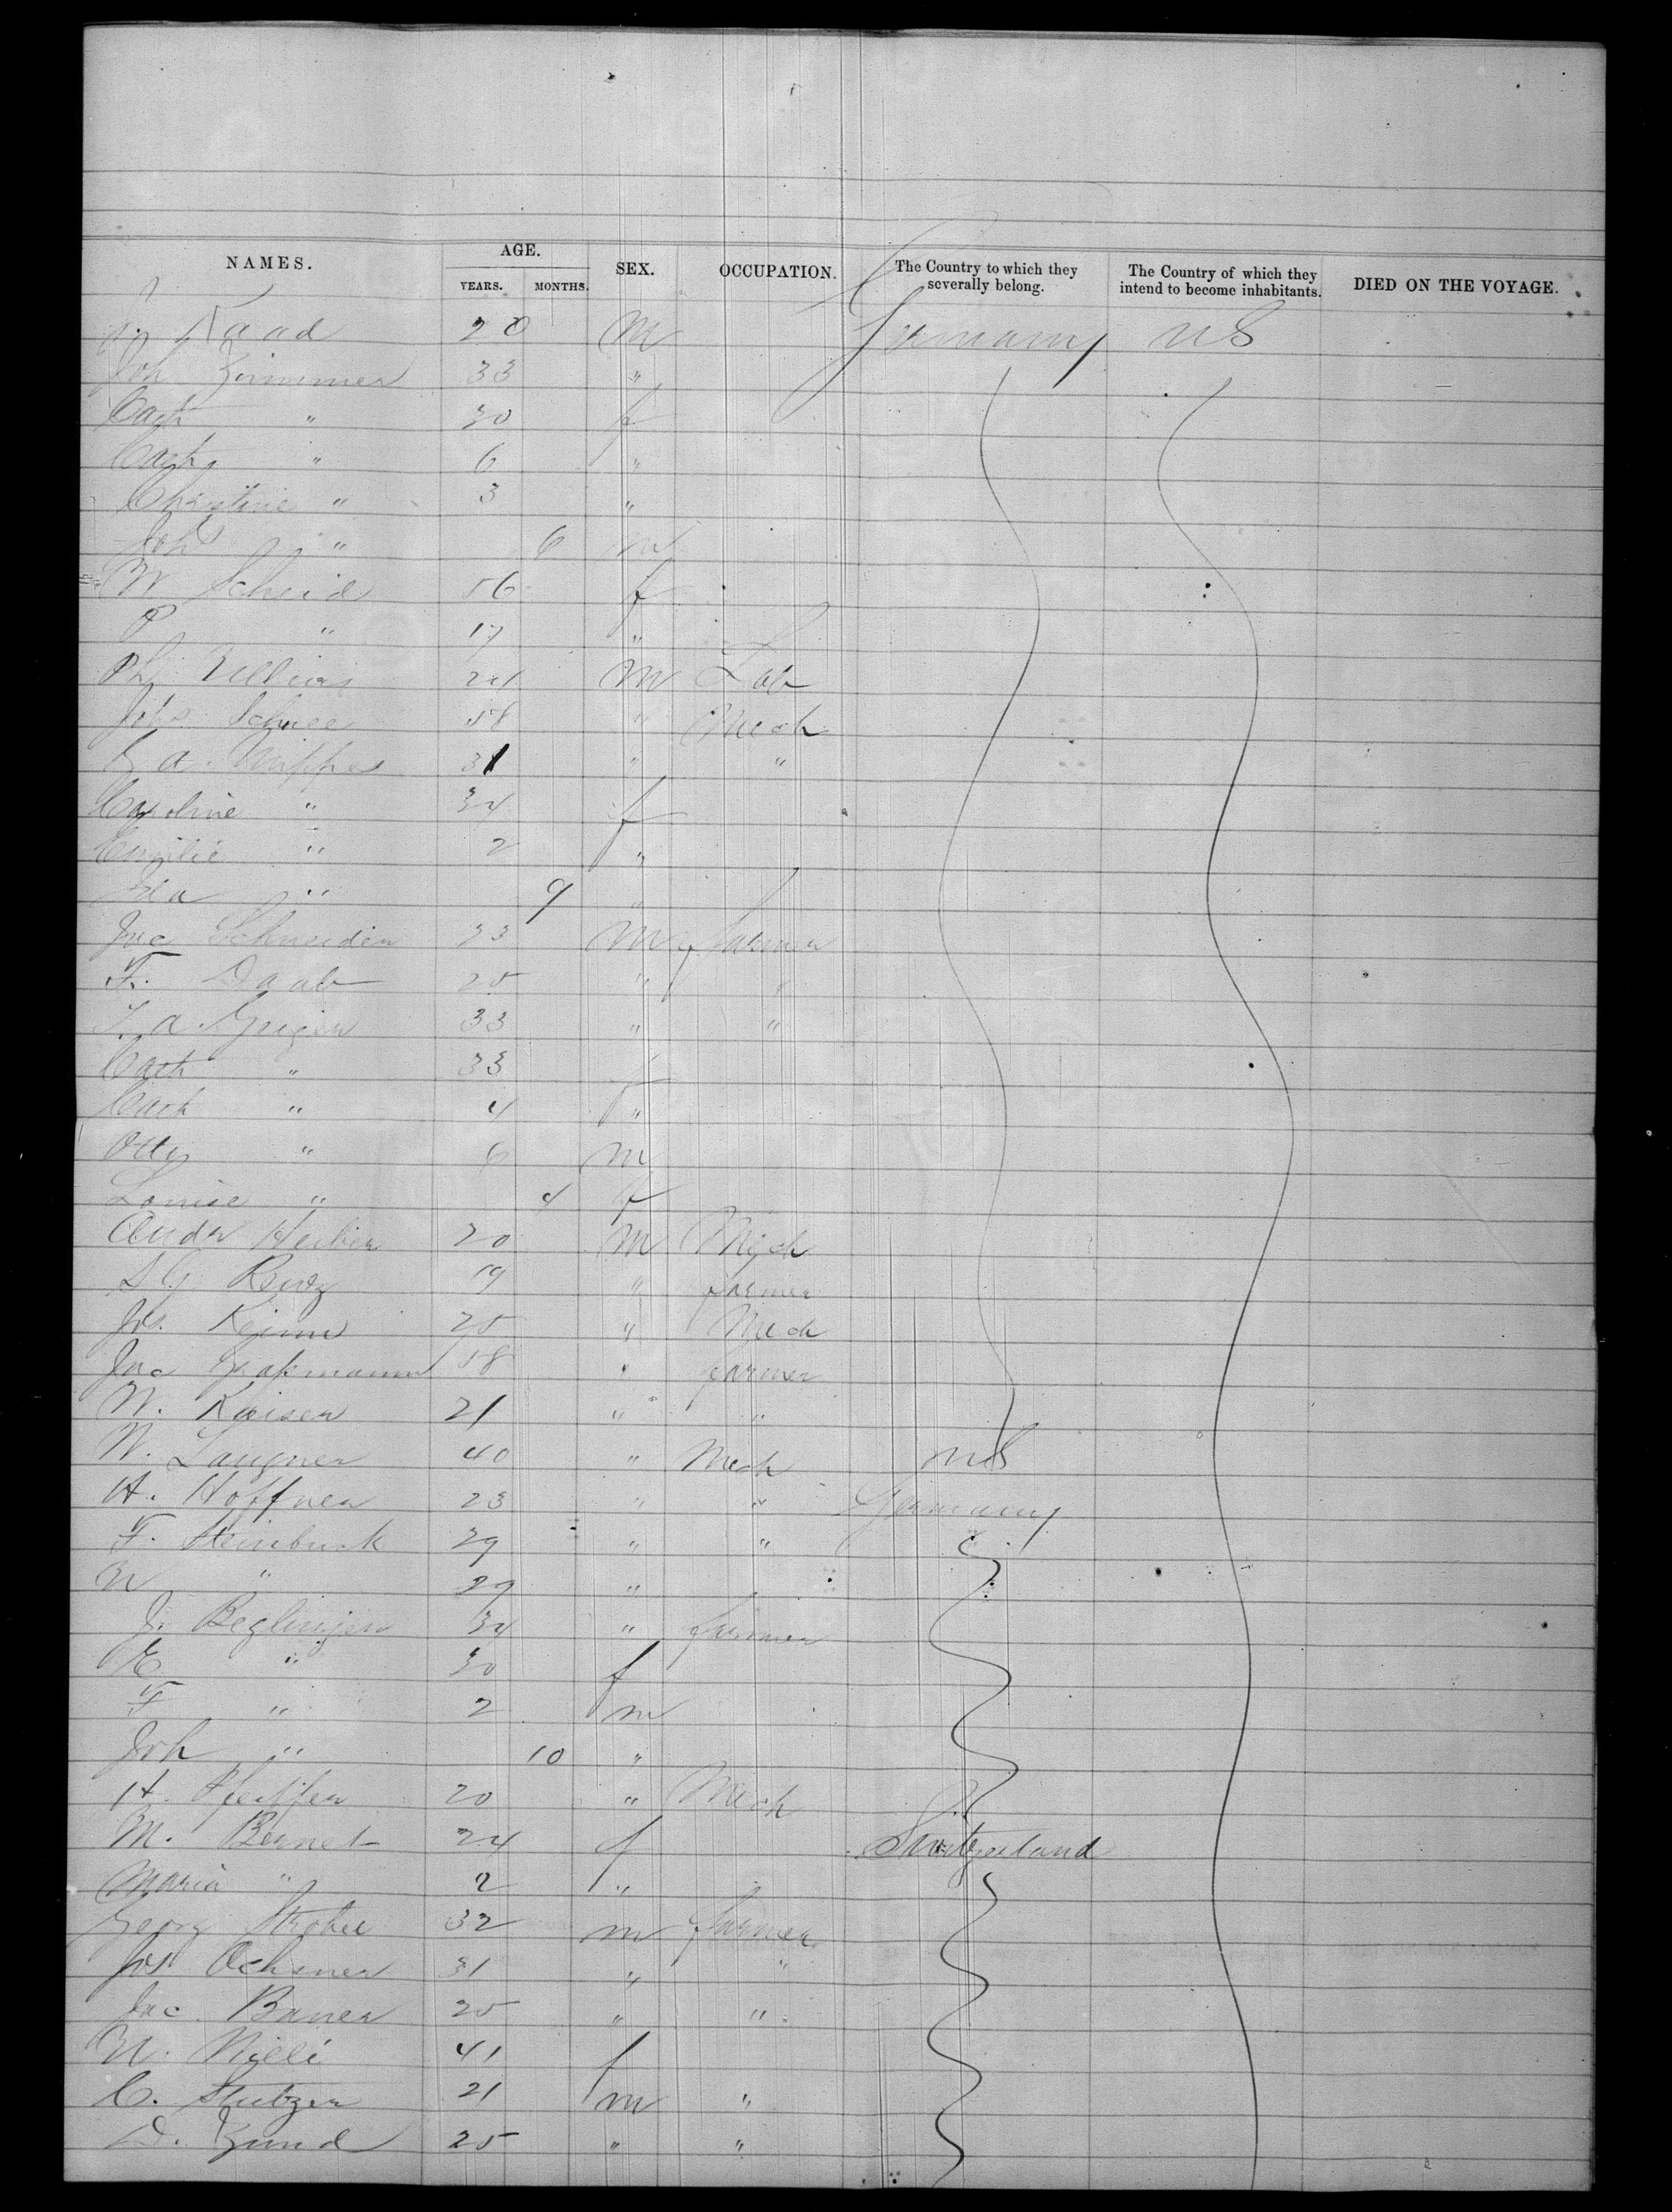 NAMES. AGE. SEX. OCCUPATION. The Country to which they severally belong. The Country of which they intend to become inhabitants. DIED ON THE VOYAGE.
YEARS. MONTHS.
Kaad 20 m Germany US
Joh Zimmer 33 "
Cath " 30 f
Cath " 6 "
Christine " 3 "
Joh " 6 m
W Scheid 56 f
P " 17 "
Ph 24 m Lab
Johs 58 " Mech
a. 31 " "
Caroline " 34 f
Emilie " 2 "
" 9 "
Jac Schneider 23 m farmer
F. Daab 25 " "
a 33 " "
Cath " 33 f
Cath " 4 "
Otto " 6 m
Louise " 4 f
Andr 20 m Mech
19 " farmer
Jos. 25 " Mech
Jac 58 " farmer
W. Kaiser 21 " "
W. Langner 40 " Mech US
H. Hoffner 23 " " Germany
F. Steinbuck 29 " "
W " 29 "
J. Beglinger 34 " farmer
E " 30 f
F " 2 m
Joh " 10 "
H. Pfeiffer 20 " Mech
M. Bernet 24 f Switzerland
Maria " 2 "
Georg 32 m farmer
Jos Ochsner 31 " "
Jac. 25 " "
41 f
C. Stutzer 21 m "
D. Zund 25 " "